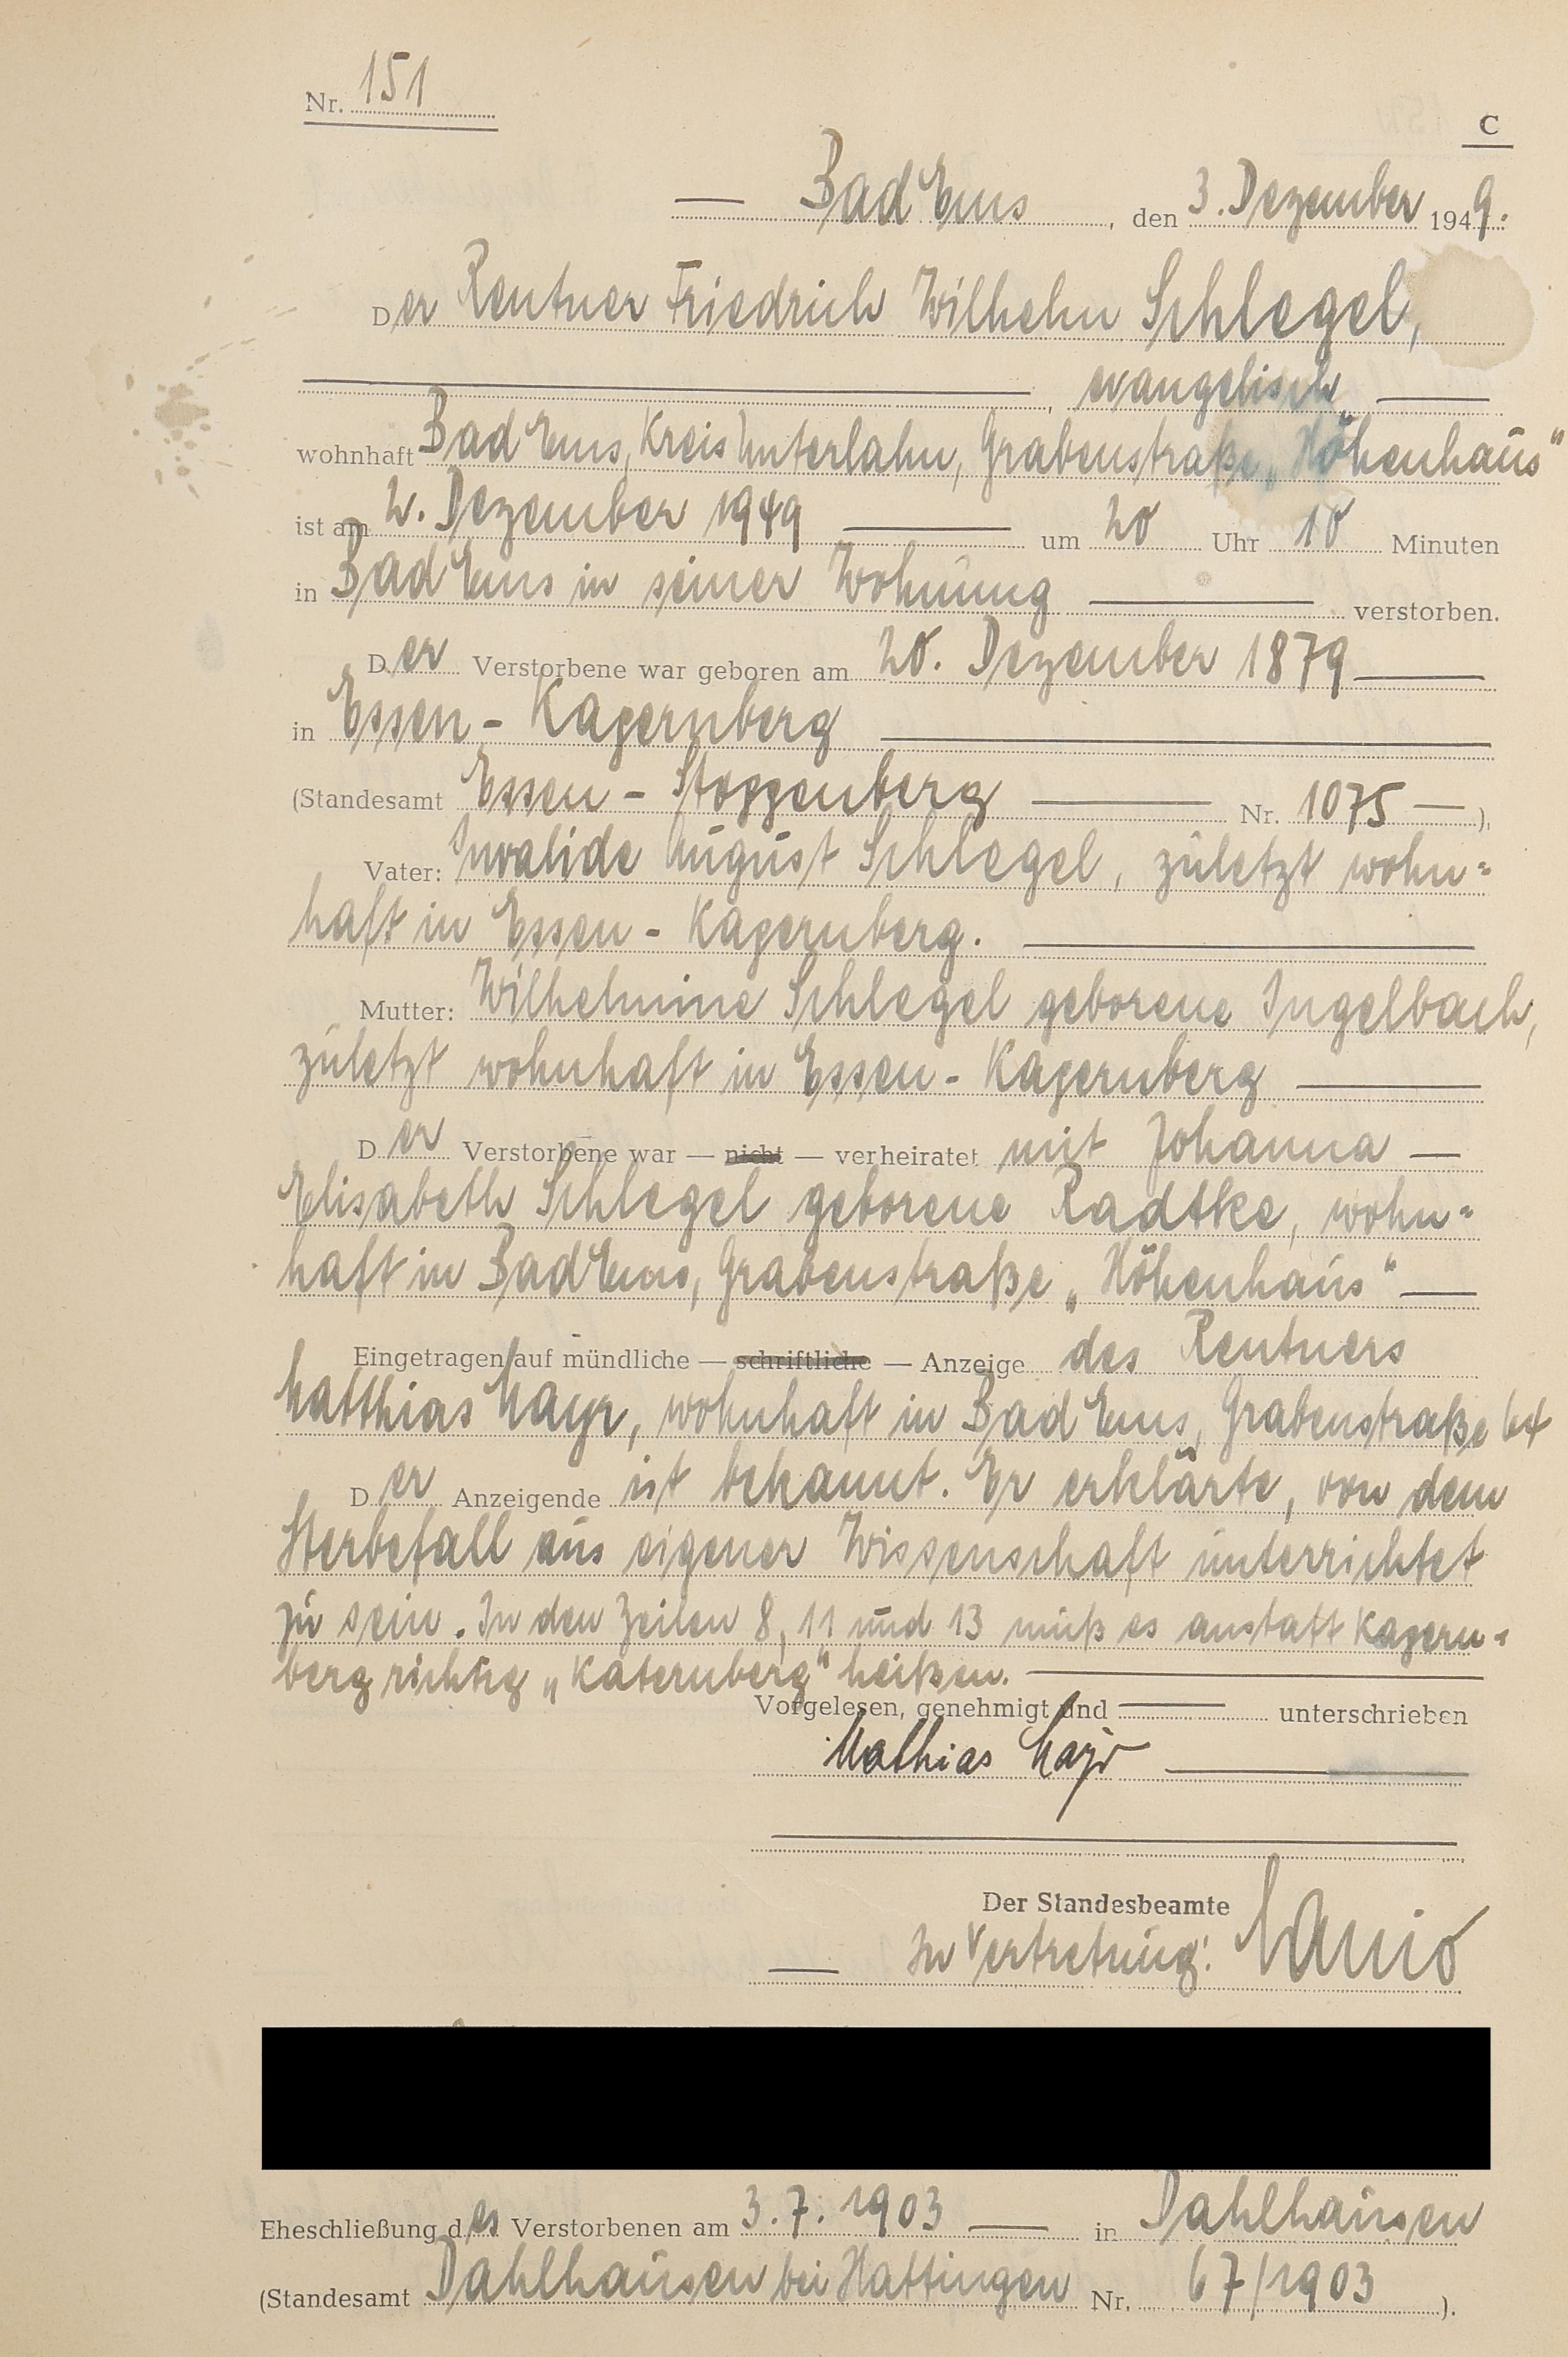 Nr. 151
C
— Bad Ems, den 3. Dezember 1949.
Der Rentner Friedrich Wilhelm Schlegel,
, evangelisch —
wohnhaft Bad Ems, Kreis Unterlahn, Grabenstraße „Höhenhaus“
ist am 2. Dezember 1949 — um 20 Uhr 10 Minuten
in Bad Ems in seiner Wohnung — verstorben.
Der Verstorbene war geboren am 20. Dezember 1879 —
in Essen - Kagernberg —
(Standesamt Essen - Stoppenberg — Nr. 1075 — ),
Vater: Invalide August Schlegel, zuletzt wohn=
haft in Essen - Kagernberg. —
Mutter: Wilhelmine Schlegel geborene Ingelbach,
zuletzt wohnhaft in Essen - Kagernberg —
Der Verstorbene war — nicht — verheiratet mit Johanna —
Elisabeth Schlegel geborene Radtke, wohn=
haft in Bad Ems, Grabenstraße „Höhenhaus“ —
Eingetragen auf mündliche — schriftliche — Anzeige des Rentners
Matthias Mayr, wohnhaft in Bad Ems, Grabenstraße 64
Der Anzeigende ist bekannt. Er erklärte, von dem
Sterbefall aus eigener Wissenschaft unterrichtet
zu sein. In den Zeilen 8, 11 und 13 muß es anstatt Kagern=
berg richtig „Katernberg“ heißen. —
Vorgelesen, genehmigt und — unterschrieben
Mathias Mayr —
Der Standesbeamte
— In Vertretung:
Eheschließung des Verstorbenen am 3.7.1903 — in Dahlhausen
(Standesamt Dahlhausen bei Hattingen Nr. 67/1903 ).